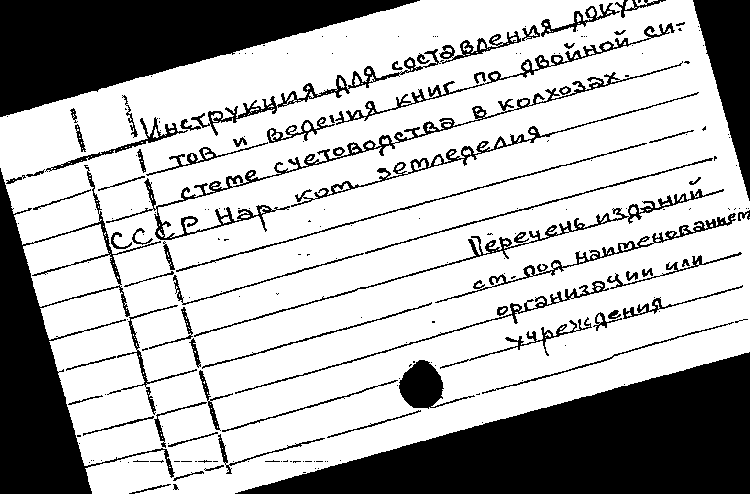 Инструкция для составления докум
тов и ведения книг по двойной си-
стеме счетоводства в колхозах.
СССР Нар. ком. земледелия.
Перечень изданий
см. под наименованием
организации или
учреждения